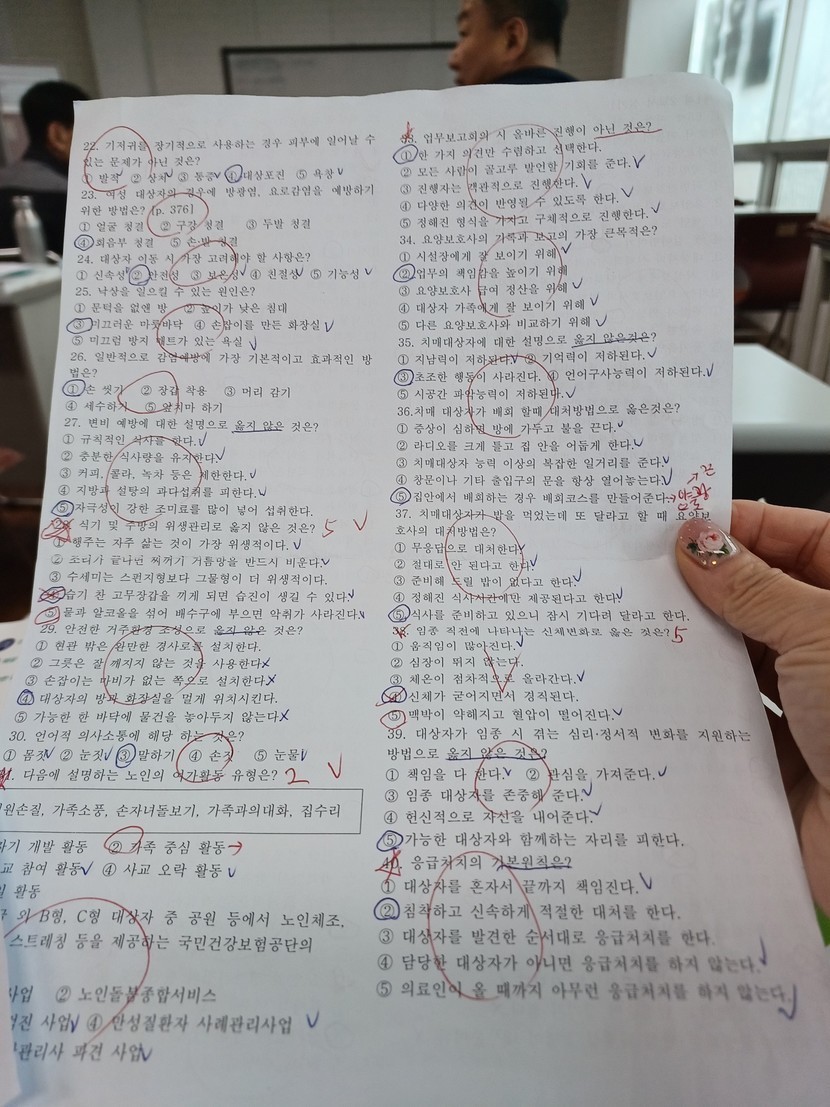 22. 기저귀를 장기적으로 사용하는 경우 피부에 일어날 수
있는 문제가 아닌 것은?
① 발적 ② 상처 ③ 통증 ④ 대상포진 ⑤ 욕창
23. 여성 대상자의 경우에 방광염, 요로감염을 예방하기
위한 방법은? [p. 376]
① 얼굴 청결 ② 구강 청결 ③ 두발 청결
④ 회음부 청결 ⑤ 손·발 청결
24. 대상자 이동 시 가장 고려해야 할 사항은?
① 신속성 ② 안전성 ③ 보온성 ④ 친절성 ⑤ 기능성
25. 낙상을 일으킬 수 있는 원인은?
① 문턱을 없앤 방 ② 높이가 낮은 침대
③ 미끄러운 마룻바닥 ④ 손잡이를 만든 화장실
⑤ 미끄럼 방지 매트가 있는 욕실
26. 일반적으로 감염예방에 가장 기본적이고 효과적인 방
법은?
① 손 씻기 ② 장갑 착용 ③ 머리 감기
④ 세수하기 ⑤ 앞치마 하기
27. 변비 예방에 대한 설명으로 옳지 않은 것은?
① 규칙적인 식사를 한다.
② 충분한 식사량을 유지한다.
③ 커피, 콜라, 녹차 등은 제한한다.
④ 지방과 설탕의 과다섭취를 피한다.
⑤ 자극성이 강한 조미료를 많이 넣어 섭취한다.
28. 식기 및 주방의 위생관리로 옳지 않은 것은? 5
① 행주는 자주 삶는 것이 가장 위생적이다.
② 조리가 끝나면 찌꺼기 거름망을 반드시 비운다.
③ 수세미는 스펀지형보다 그물형이 더 위생적이다.
④ 습기 찬 고무장갑을 끼게 되면 습진이 생길 수 있다.
⑤ 물과 알코올을 섞어 배수구에 부으면 악취가 사라진다.
29. 안전한 거주환경 조성으로 옳지 않은 것은?
① 현관 밖은 완만한 경사로를 설치한다.
② 그릇은 잘 깨지지 않는 것을 사용한다.
③ 손잡이는 마비가 없는 쪽으로 설치한다.
④ 대상자의 방과 화장실을 멀게 위치시킨다.
⑤ 가능한 한 바닥에 물건을 놓아두지 않는다.
30. 언어적 의사소통에 해당 하는 것은?
① 몸짓 ② 눈짓 ③ 말하기 ④ 손짓 ⑤ 눈물
다음에 설명하는 노인의 여가활동 유형은? 2
원손질, 가족소풍, 손자녀돌보기, 가족과의대화, 집수리
자기 개발 활동 ② 가족 중심 활동
교 참여 활동 ④ 사교 오락 활동
활동
외 B형, C형 대상자 중 공원 등에서 노인체조,
스트레칭 등을 제공하는 국민건강보험공단의
사업 ② 노인돌봄종합서비스
사업 ④ 만성질환자 사례관리사업
관리사 파견 사업
33. 업무보고회의 시 올바른 진행이 아닌 것은?
① 한 가지 의견만 수렴하고 선택한다.
② 모든 사람이 골고루 발언할 기회를 준다.
③ 진행자는 객관적으로 진행한다.
④ 다양한 의견이 반영될 수 있도록 한다.
⑤ 정해진 형식을 가지고 구체적으로 진행한다.
34. 요양보호사의 기록과 보고의 가장 큰목적은?
① 시설장에게 잘 보이기 위해
② 업무의 책임감을 높이기 위해
③ 요양보호사 급여 정산을 위해
④ 대상자 가족에게 잘 보이기 위해
⑤ 다른 요양보호사와 비교하기 위해
35. 치매대상자에 대한 설명으로 옳지 않은것은?
① 지남력이 저하된다. ② 기억력이 저하된다.
③ 초조한 행동이 사라진다. ④ 언어구사능력이 저하된다.
⑤ 시공간 파악능력이 저하된다.
36.치매 대상자가 배회 할때 대처방법으로 옳은것은?
① 증상이 심하면 방에 가두고 불을 끈다.
② 라디오를 크게 틀고 집 안을 어둡게 한다.
③ 치매대상자 능력 이상의 복잡한 일거리를 준다.
④ 창문이나 기타 출입구의 문을 항상 열어놓는다.
⑤ 집안에서 배회하는 경우 배회코스를 만들어준다.
37. 치매대상자가 밥을 먹었는데 또 달라고 할 때 요양보
호사의 대처방법은?
① 무응답으로 대처한다.
② 절대로 안 된다고 한다.
③ 준비해 드릴 밥이 없다고 한다.
④ 정해진 식사시간에만 제공된다고 한다.
⑤ 식사를 준비하고 있으니 잠시 기다려 달라고 한다.
38. 임종 직전에 나타나는 신체변화로 옳은 것은? 5
① 움직임이 많아진다.
② 심장이 뛰지 않는다.
③ 체온이 점차적으로 올라간다.
④ 신체가 굳어지면서 경직된다.
⑤ 맥박이 약해지고 혈압이 떨어진다.
39. 대상자가 임종 시 겪는 심리·정서적 변화를 지원하는
방법으로 옳지 않은 것은?
① 책임을 다 한다. ② 관심을 가져준다.
③ 임종 대상자를 존중해 준다.
④ 헌신적으로 자신을 내어준다.
⑤ 가능한 대상자와 함께하는 자리를 피한다.
40. 응급처치의 기본원칙은?
① 대상자를 혼자서 끝까지 책임진다.
② 침착하고 신속하게 적절한 대처를 한다.
③ 대상자를 발견한 순서대로 응급처치를 한다.
④ 담당한 대상자가 아니면 응급처치를 하지 않는다.
⑤ 의료인이 올 때까지 아무런 응급처치를 하지 않는다.